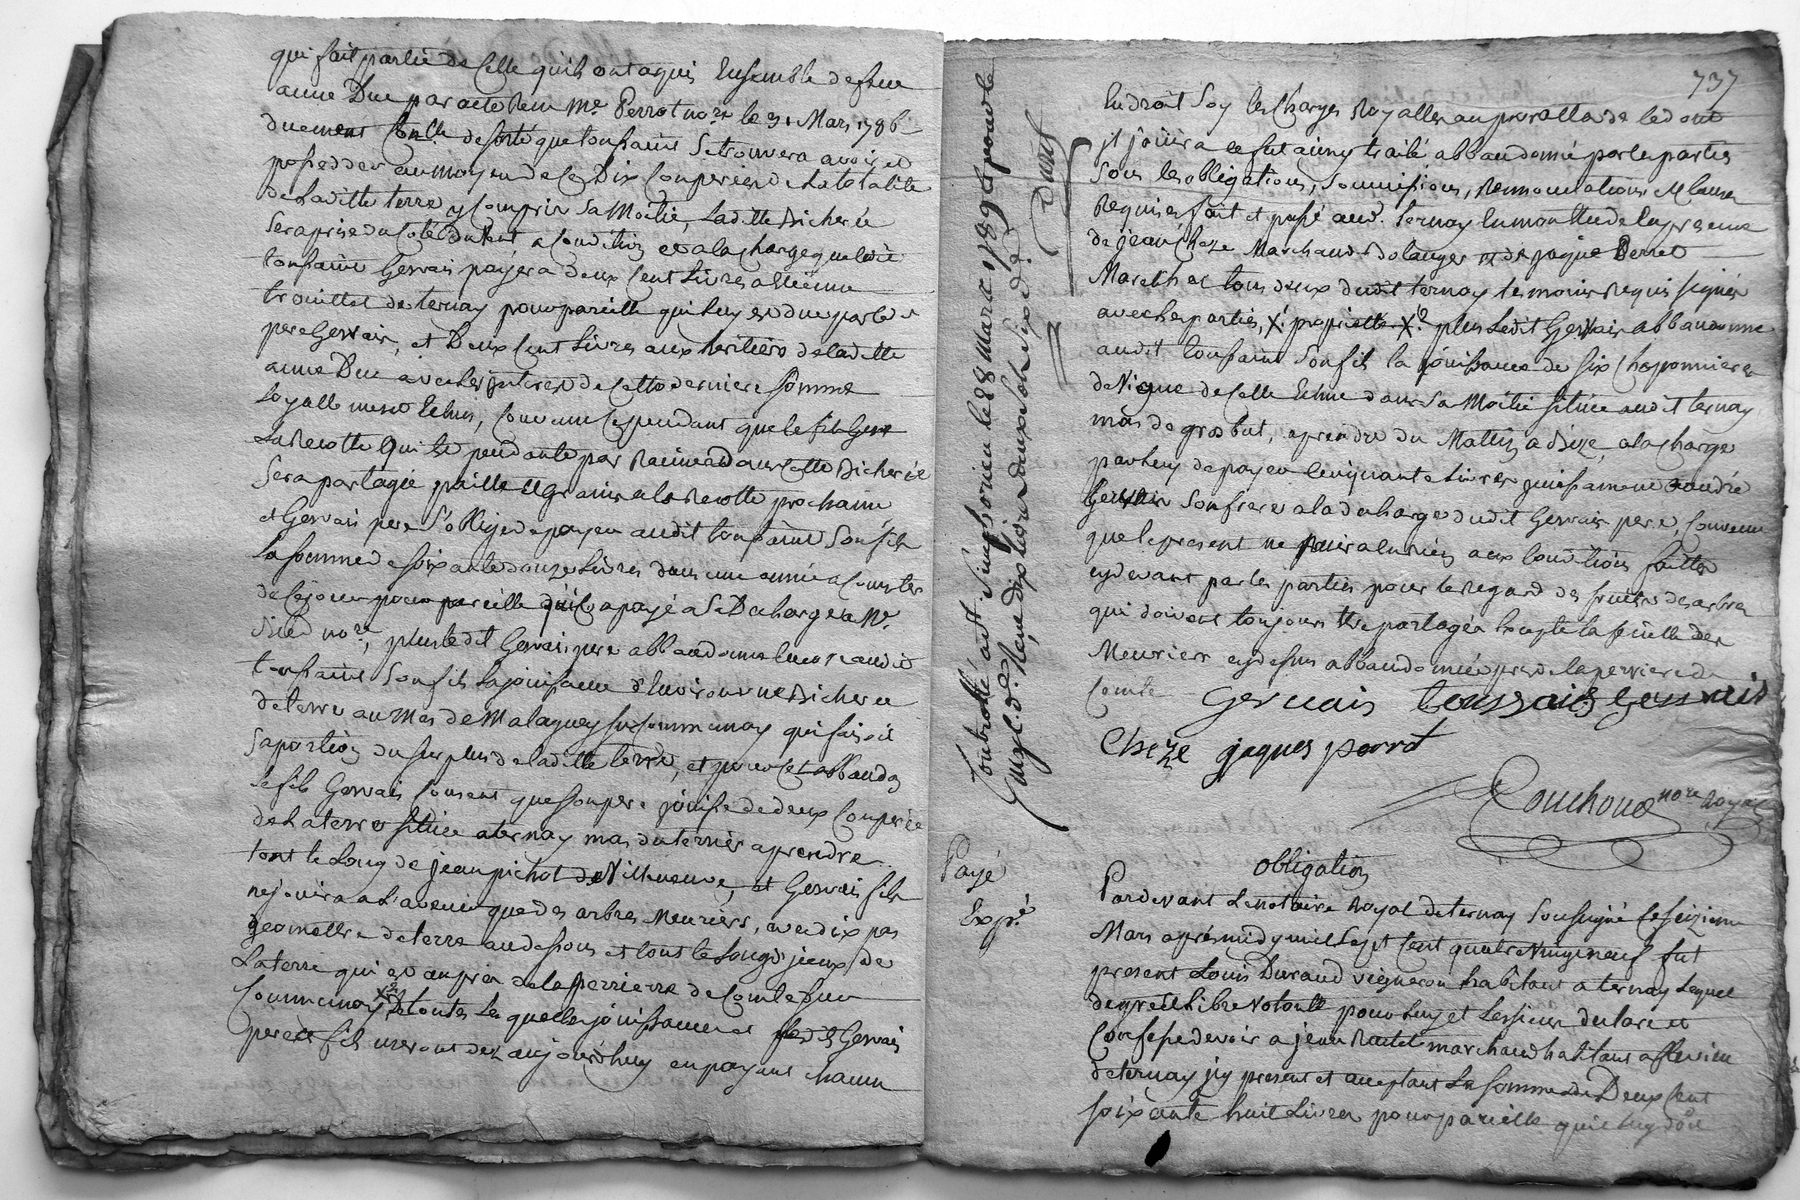 qui fait partie de Celle quils ont aquis Ensemble de feue
anne Duc par acte Reçu Me. Perrot nore le 31 Mars 1786
duement Conllé desorte que toussaint Setrouvera avoir et
posseder au moyen de Ce Dix Couperées de la totalité
de Laditte terre y Compris Sa Moitié, Laditte Bicherée
Sera prise du Coté a Condition et a la charge que ledit
toussaint Gervais payera deux Cent Livres a etienne
trouillet de ternay pour pareille qui luy est due par le
pere Gervais, et Deux Cent Livres aux heritiers de laditte
anne Duc avec les jnterest de Cette derniere Somme
Loyallement Echus, Convenu Cependant que le fils Gervais
La Recolte qui Est pendante par Racine dans Cette Bicherée
Sera partagée paille et grains a la Recolte prochaine
et Gervais pere S'oblige de payer audit toussaint Son fils
La Somme de soixante douze Livres dans une année a Compter
de Cejour pour pareille quil a payé a Sa Decharge a Me.
nore, plus ledit Gervais pere abbandonne Encore audit
toussaint Son fils La joüissance d'Environ une Bicherée
de terre au Mas de Malaguey Sus Communay qui faisoit
Saportion du Surplus de laditte terre, et pour Cet abbandon
Le fils Gervais Consent que Son pere joüisse de deux Couperée
de La terre Située a ternay mas du ternier a prendre
tout le Long de jean pichot de Villeneuve, et Gervais fils
nejouira a L'avenir que des arbres Meuriers, avec dix pas
geometre de terre au dessous et tout le Long d'jceux de
La terre qui est auprès de la perriere de Comte Sur
Communay X? de toutes Les quelles joüissances Lesd. Gervais
pere et fils useront dez aujourd'huy en payant chacun
737
Endroit Soy les charges Royalles au prorata de ce dont
jl joüira ce fut ainsy traité abbandonné par les parties
Sous les obligations, Soumissions, Renonciations et Clauses
Requises fait et passé aud. ternay En mon Etude En presence
de jean Cheze Marchand Bolanger et de jaque Perrot
Marechal tous deux dudit ternay temoins Requis signés
avec les parties, X? proprietté X? plus Ledit Gervais abbandonne
audit toussaint Son fils la joüissance de Six Choponnieres
de Vigne de Celle Echue dans Sa Moitié Située audit ternay
mas de grosbut, a prendre du Matin a Bize, a la charge
par luy de payer Cinquante Livres
Gervais Son frere a la decharge dudit Gervais pere, Convenu
que le present ne nuira en rien aux Conditions faittes
cy devant par les parties pour le Regard des fruits des arbres
qui doivent toujours Etre partagés Excepté la feuille des
Meuriers cy dessus abbandonnée près de la perriere de
Comte Gervais toussaint gervais
Cheze jaques perrot
Couchoud nore Royal
Controllé a St. Simphorien le 28 Mars 1789 Gs pour le
Gingt d.r Reçu dix livres deux Sols Six d.s
Duret
Payé
Expé.
obligation
Pardevant Le notaire Royal de ternay Soussigné Ce Seizieme
Mars aprés midy mil Sept Cent quatre Vingt neuf fut
present Louis Durand vigneron habitant a ternay Lequel
de gré et libre Volonté pour luy et Les siens declare et
Confesse devoir a jean marchand habitant a
de ternay jcy present et acceptant La Somme de Deux Cent
soixante huit Livres pour pareille quil luy doit